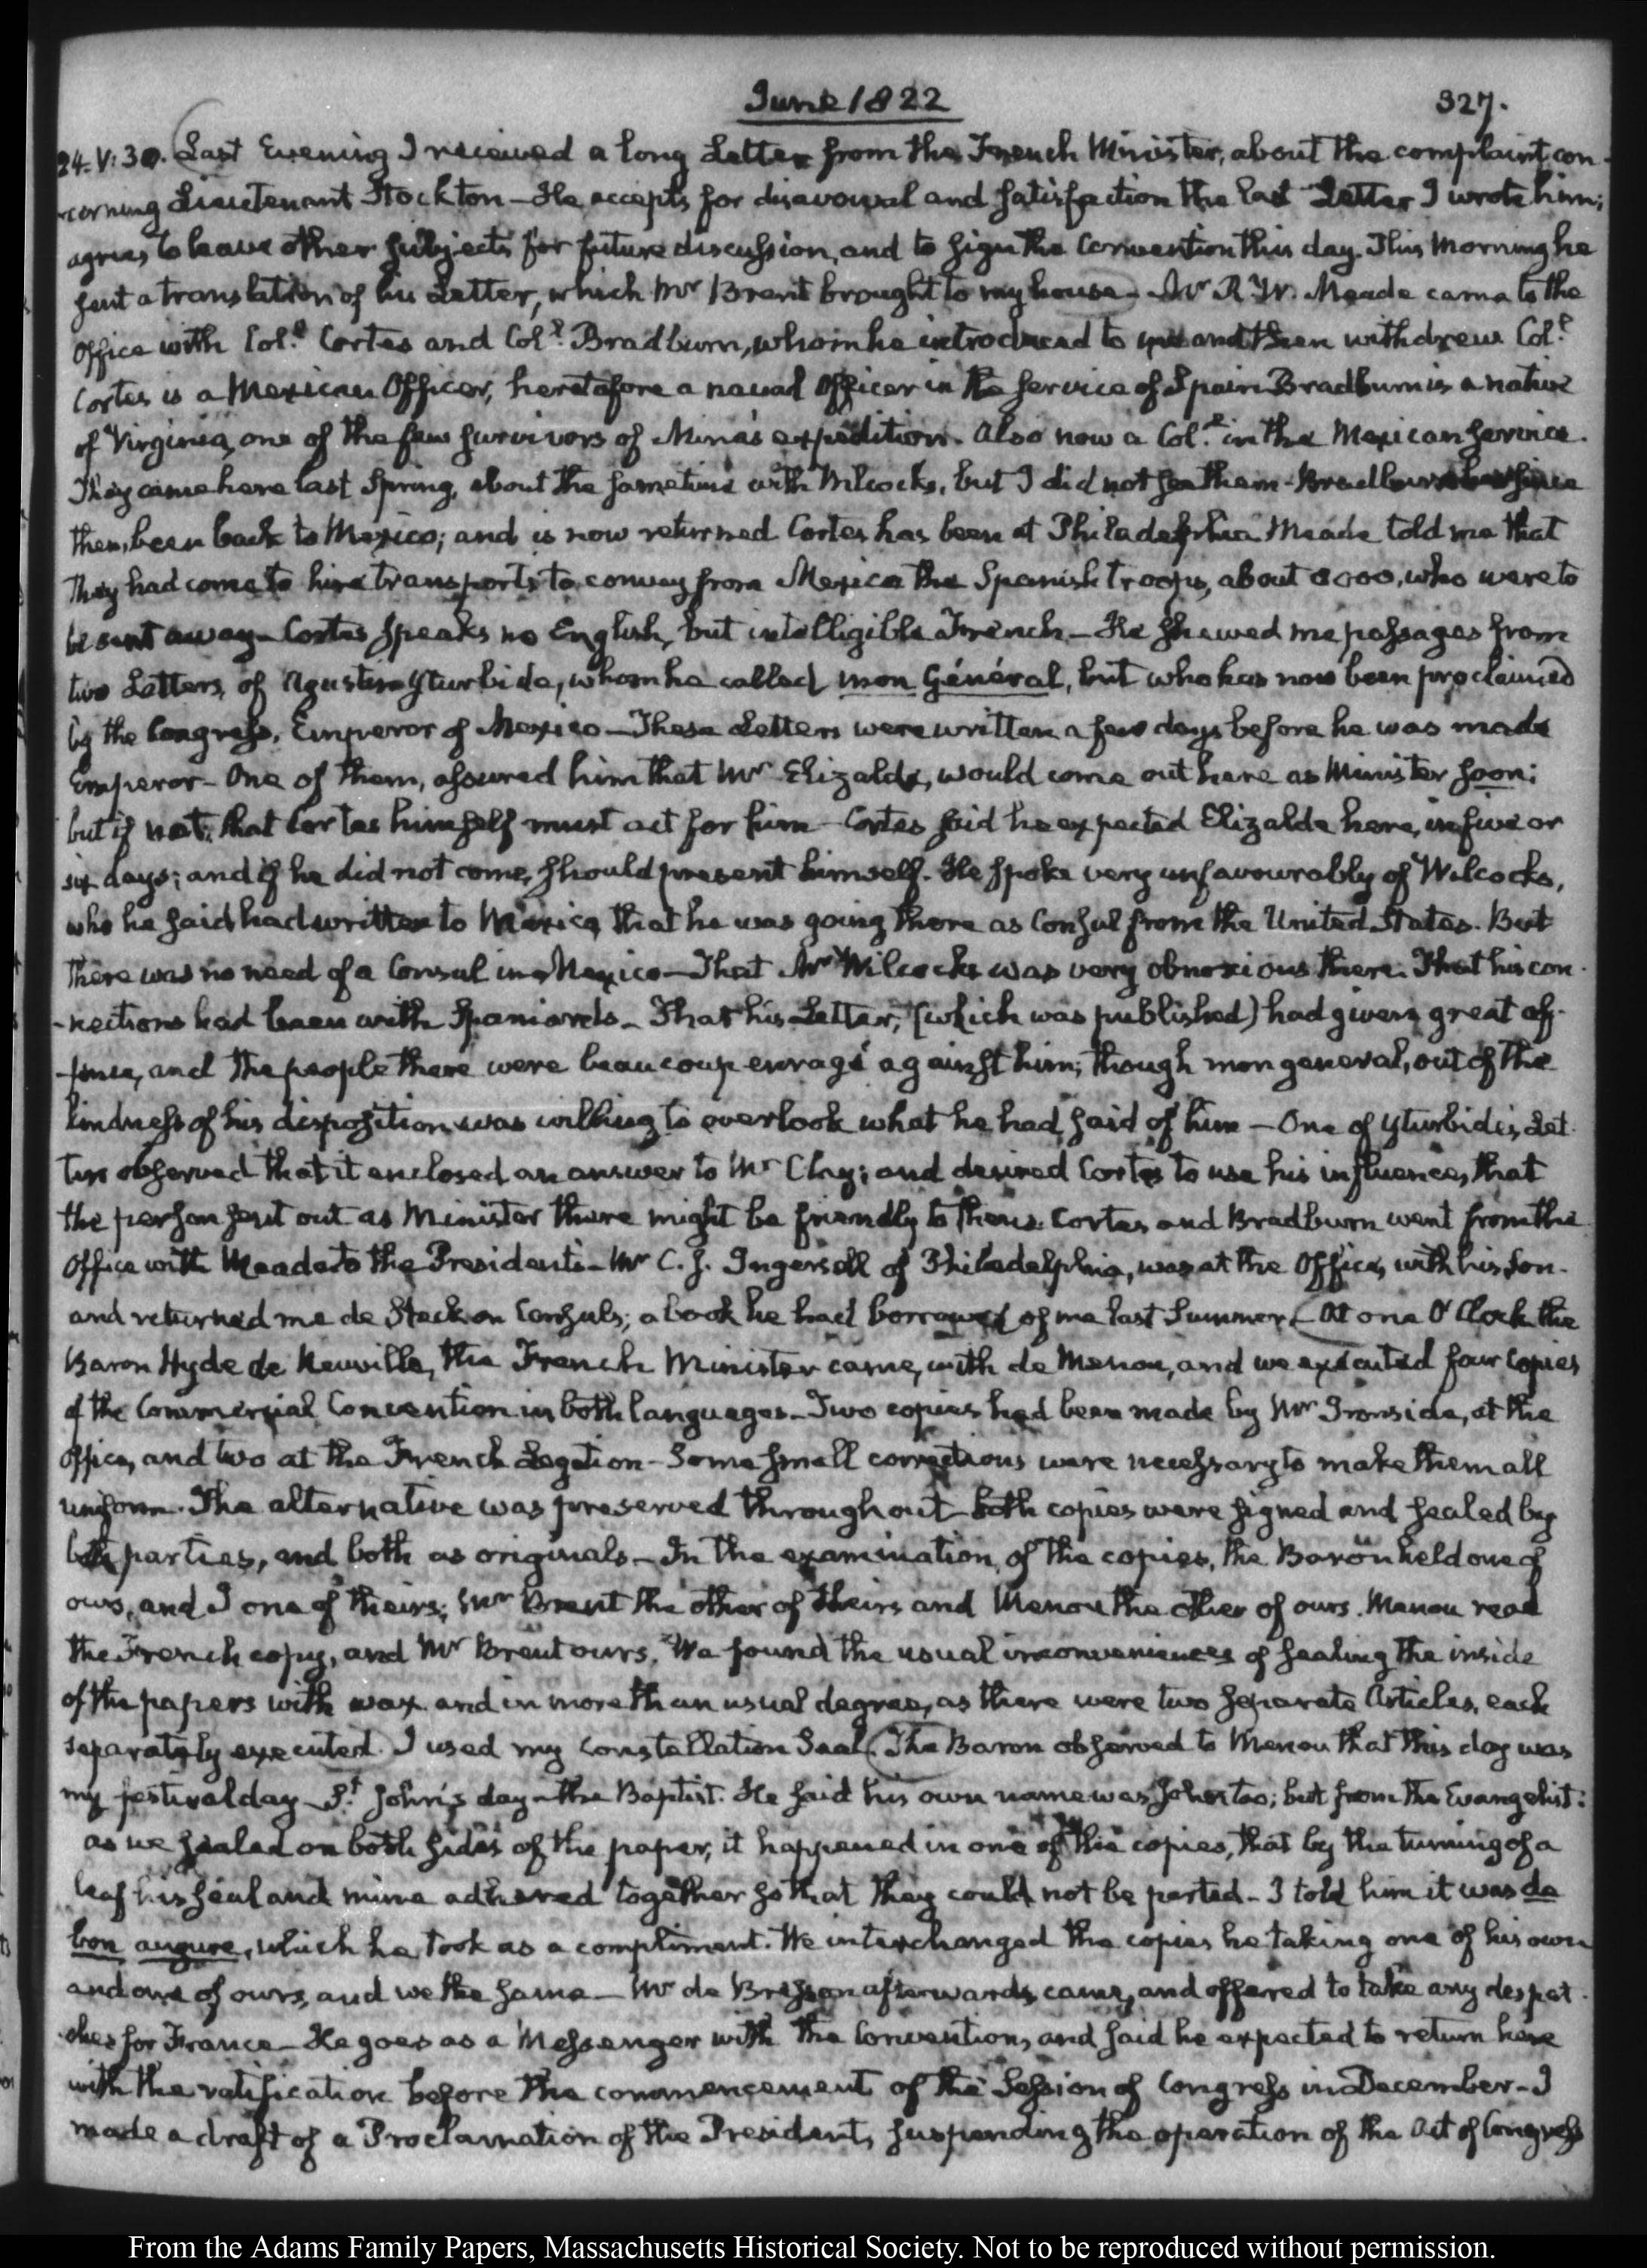 June 1822
327.
24. V:30. Last Evening I received a long Letter from the French Minister, about the complaint con-
-cerning Lieutenant Stockton—He accepts for disavowal and satisfaction the last Letter I wrote him;
agrees to leave other subjects for future discussion, and to sign the Convention this day. This Morning he
sent a translation of his Letter, which Mr Brent brought to my house—Mr R. W. Meade came to the
Office with Coll. Cortes and Coll. Bradburn, whom he introduced to me and then withdrew Coll.
Cortes is a Mexican Officer, heretofore a naval Officer in the service of Spain Bradburn is a native
of Virginia, one of the few survivors of Mina's expedition. Also now a Coll. in the Mexican service.
They came here last Spring, about the same time with Wilcocks, but I did not see them—Bradburn has since
then, been back to Mexico; and is now returned Cortes has been at Philadelphia Meade told me that
they had come to hire transports to convey from Mexico the Spanish troops, about 2000, who were to
be sent away—Cortes speaks no English, but intelligible French—He shewed me passages from
two Letters, of Agustin Yturbide, whom he called mon Général, but who has now been proclaimed
by the Congress, Emperor of Mexico—These Letters were written a few days before he was made
Emperor—One of them, assured him that Mr Elizalde, would come out here as Minister soon;
but if not, that Cortes himself must act for him—Cortes said he expected Elizalde here, in five or
six days; and if he did not come, should present himself. He spoke very unfavourably of Wilcocks,
who he said had written to Mexico, that he was going there as Consul from the United States. But
there was no need of a Consul in Mexico—That Mr Wilcocks was very obnoxious there. That his con-
-nections had been with Spaniards—That his Letter, (which was published) had given great of-
-fence, and the people there were beaucoup enragé against him; though mon general, out of the
kindness of his disposition was willing to overlook what he had said of him—One of Yturbide's Let-
ters observed that it enclosed an answer to Mr Clay; and desired Cortes to use his influence, that
the person sent out as Minister there might be friendly to them. Cortes and Bradburn went from the
Office with Meade to the President's—Mr C. J. Ingersoll of Philadelphia, was at the Office, with his Son.
and returned me de Steck on Consuls; a book he had borrowed of me last Summer. At one O'Clock the
Baron Hyde de Neuville, the French Minister came, with de Menou, and we executed four copies
of the Commercial Convention in both languages—Two copies had been made by Mr Ironside, at the
office, and two at the French Legation—Some small corrections were necessary to make them all
uniform. The alternative was preserved throughout—both copies were signed and sealed by
both parties, and both as originals—In the examination of the copies, the Baron held one of
ours, and I one of theirs; Mr Brent the other of theirs and Menou the other of ours. Menou read
the French copy, and Mr Brent ours. We found the usual inconveniences of sealing the inside
of the papers with wax and in more than usual degree, as there were two separate Articles, each
separately executed. I used my Constellation Seal. The Baron observed to Menou that this day was
my festival day—St. John's day—the Baptist. He said his own name was John too; but from the Evangelist:
as we sealed on both sides of the paper, it happened in one of the copies, that by the turning of a
leaf his seal and mine adhered together so that they could not be parted—I told him it was de
bon augure, which he took as a compliment. We interchanged the copies he taking one of his own
and one of ours, and we the same—Mr de Bresson afterwards came, and offered to take any despat-
-ches for France—He goes as a Messenger with the Convention, and said he expected to return here
with the ratification before the commencement of the Session of Congress in December—I
made a draft of a Proclamation of the President, suspending the operation of the Act of Congress
From the Adams Family Papers, Massachusetts Historical Society. Not to be reproduced without permission.